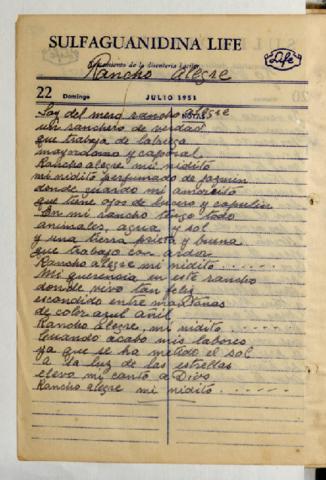 SULFAGUANIDINA LIFE
Tratamiento de la disentería bacilar
Life
Rancho Alegre
22 Domingo JULIO 1951
NOTAS
Soy del mero rancho alegre
un ranchero de verdad
que trabaja de labriego
mayordomo y caporal
Rancho alegre mi nidito
mi nidito perfumado de jazmín
donde guardo mi amorcito
que tiene ojos de lucero y capulín
En mi rancho tengo todo
animales, agua y sol
y una tierra prieta y buena
que trabajo con ardor
Rancho alegre mi nidito ......
Mi querencia en este rancho
donde vivo tan feliz
escondido entre montañas
de color azul añil
Rancho alegre, mi nidito ......
Cuando acabo mis labores
ya que se ha metido el sol
a la luz de las estrellas
elevo mi canto a Dios
Rancho alegre mi nidito ......